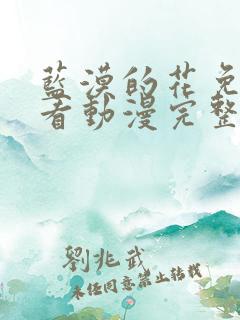 藍漠的花免
看動漫完整
劉兆武
未经同意禁止转载